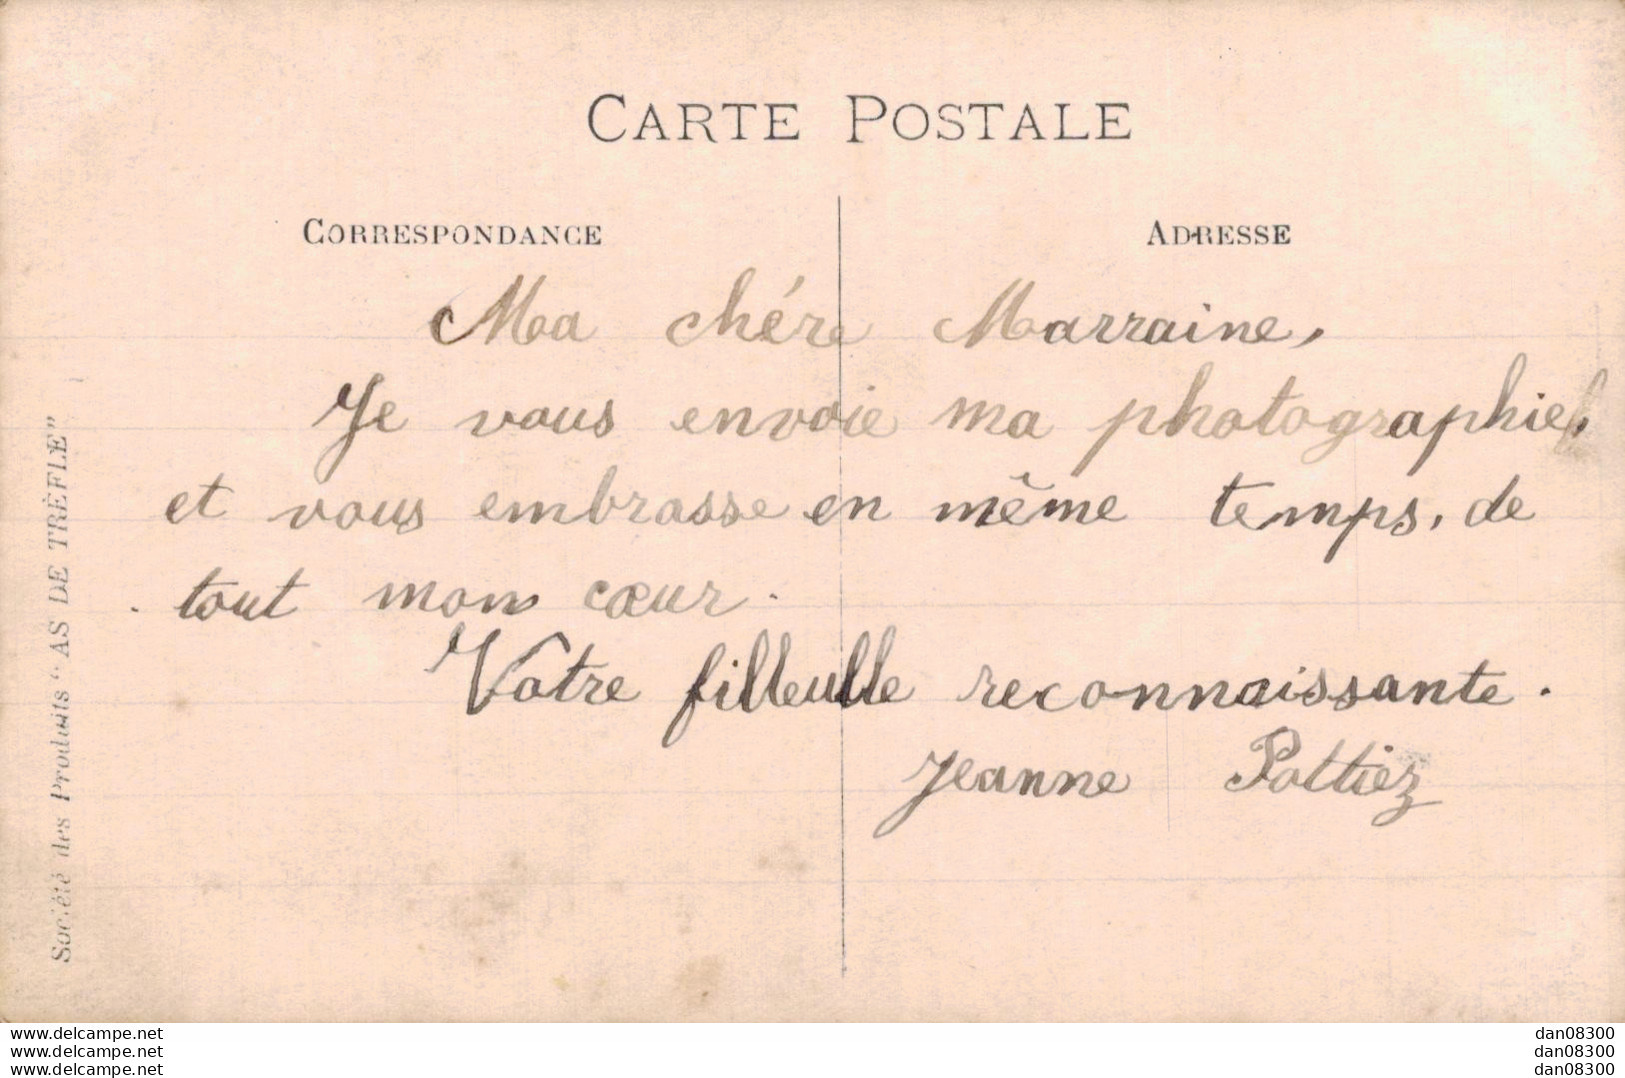 CARTE POSTALE
CORRESPONDANCE
ADRESSE
Ma chére Marraine,
Je vous envoie ma photographie,
et vous embrasse en même temps, de
tout mon cœur.
Votre filleulle reconnaissante.
Jeanne Pottiez
Société des Produits "AS DE TRÈFLE"
www.delcampe.net
www.delcampe.net
www.delcampe.net
dan08300
dan08300
dan08300